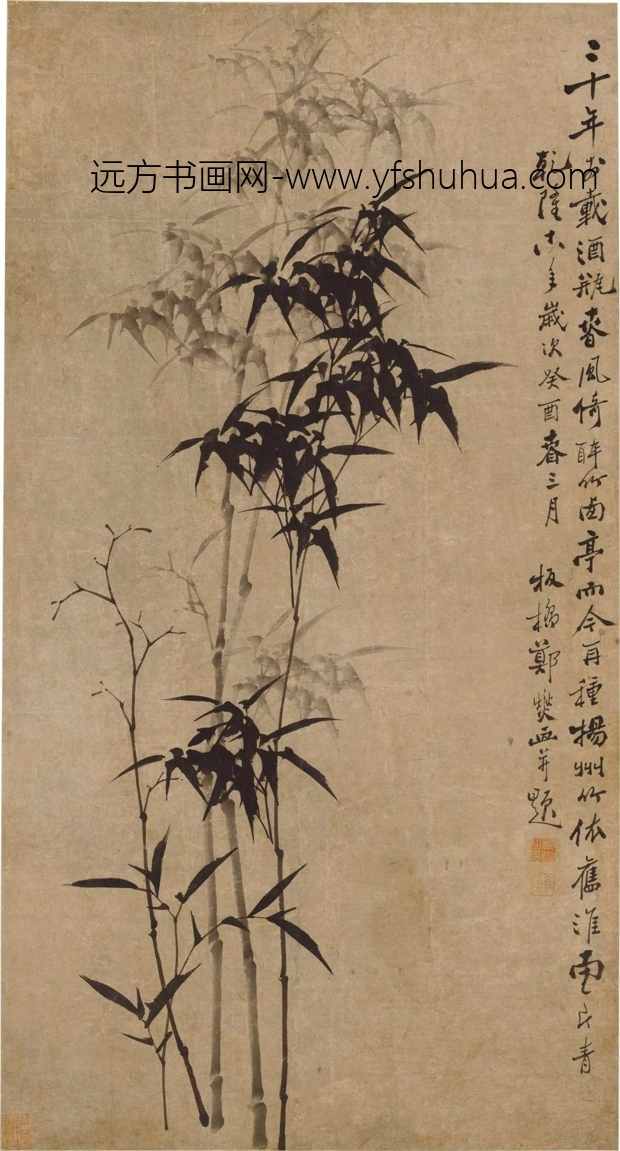 三十年前載酒瓶春風倚醉竹西亭而今再種揚州竹依舊淮南一片青
乾隆十八年歲次癸酉春三月 板橋鄭燮画并題
远方书画网-www.yfshuhua.com